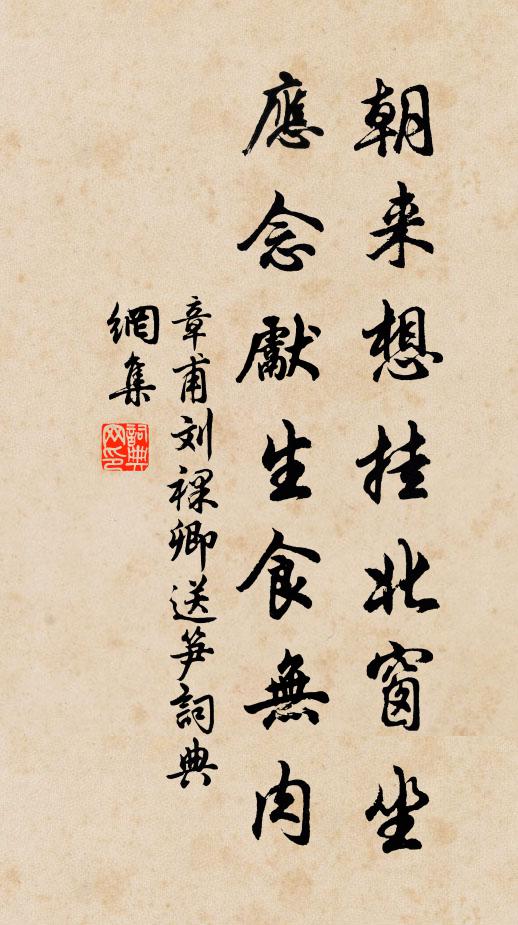 朝来想挂北窗坐
應念獻生食無肉
章甫刘裸卿送笋詞典
網集
詞典網印